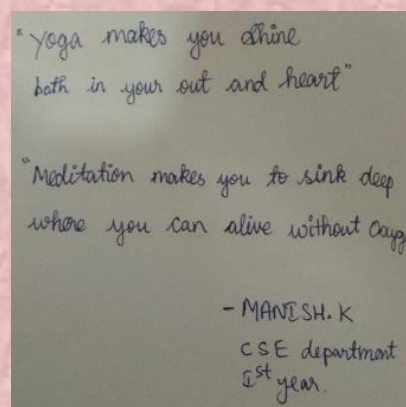 "Yoga makes you shine
both in your out and heart"
"Meditation makes you to sink deep
where you can alive without
- MANISH.K
CSE department
Ist year.